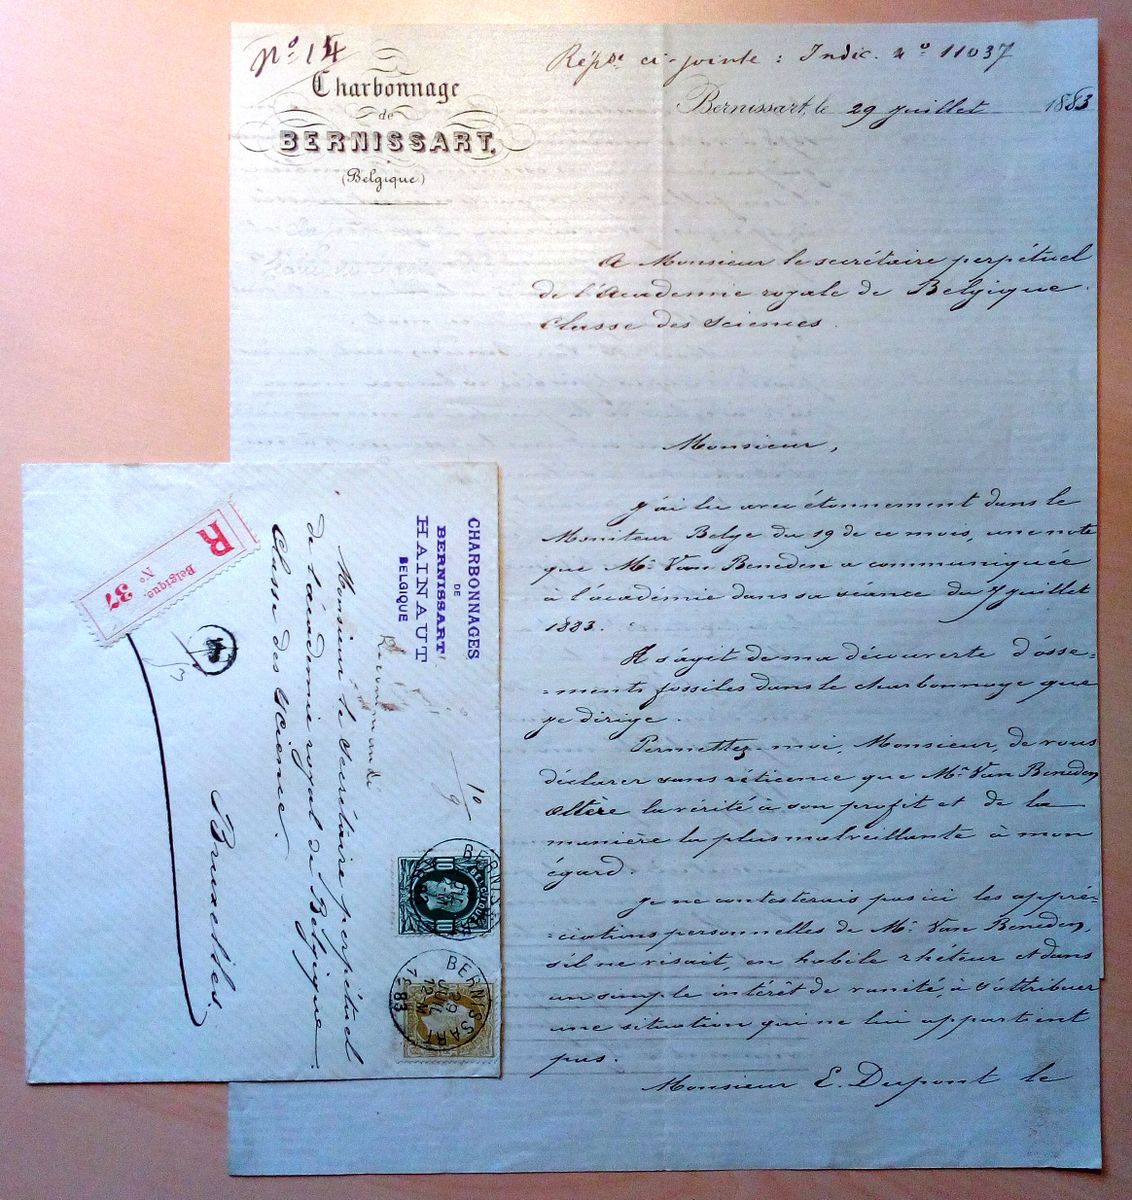 Nº 14
Charbonnage
de
BERNISSART,
(Belgique)
Répse ci-jointe : Indic. nº 11037
Bernissart, le 29 juillet 1883
A Monsieur le secrétaire perpétuel
de l'académie royale de Belgique.
Classe des sciences.
Monsieur,
J'ai lu avec étonnement dans le
Moniteur Belge du 19 de ce mois, une note
que Mr Van Beneden a communiquée
à l'académie dans sa séance du 7 juillet
1883.
Il s'agit de ma découverte d'osse=
=ments fossiles dans le charbonnage que
je dirige.
Permettez-moi, Monsieur, de vous
déclarer sans réticence que Mr Van Beneden
altère la vérité à son profit et de la
manière la plus malveillante à mon
égard.
Je ne contesterais pas ici les appré=
=ciations personnelles de Mr Van Beneden,
s'il ne visait, en habile rhéteur et dans
un simple intérêt de vanité, à s'attribuer
une situation qui ne lui appartient
pas.
Monsieur E. Dupont le
CHARBONNAGES
DE
BERNISSART
HAINAUT
BELGIQUE
Recommandée
10
9
Monsieur le Secrétaire perpétuel
de l'académie royal de Belgique
Classe des Science.
Bruxelles.
R
Belgique.
Nº 37
BERNISSART
10
10
BERNISSART
29
JUIL
12 M
83